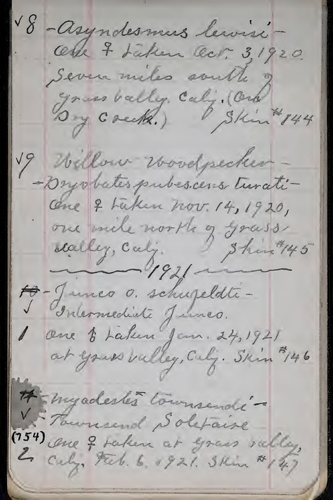 √8 - Asyndesmus lewisi -
One ♀ taken Oct. 3, 1920.
Seven miles south of
Grass Valley, Calif. (On
Dry Creek.) Skin #144
√9 Willow Woodpecker -
- Dryobates pubescens turati -
One ♀ taken Nov. 14, 1920,
one mile north of Grass
Valley, Calif. Skin #145
1921
10 - Junco o. schufeldti -
√ Intermediate Junco.
1 One ♀ taken Jan. 24, 1921
at Grass Valley, Calif. Skin #146
11 - Myadestes townsendi -
√ Townsend Solitaire
(754) One ♀ taken at Grass Valley,
2 Calif. Feb. 6, 1921. Skin #147